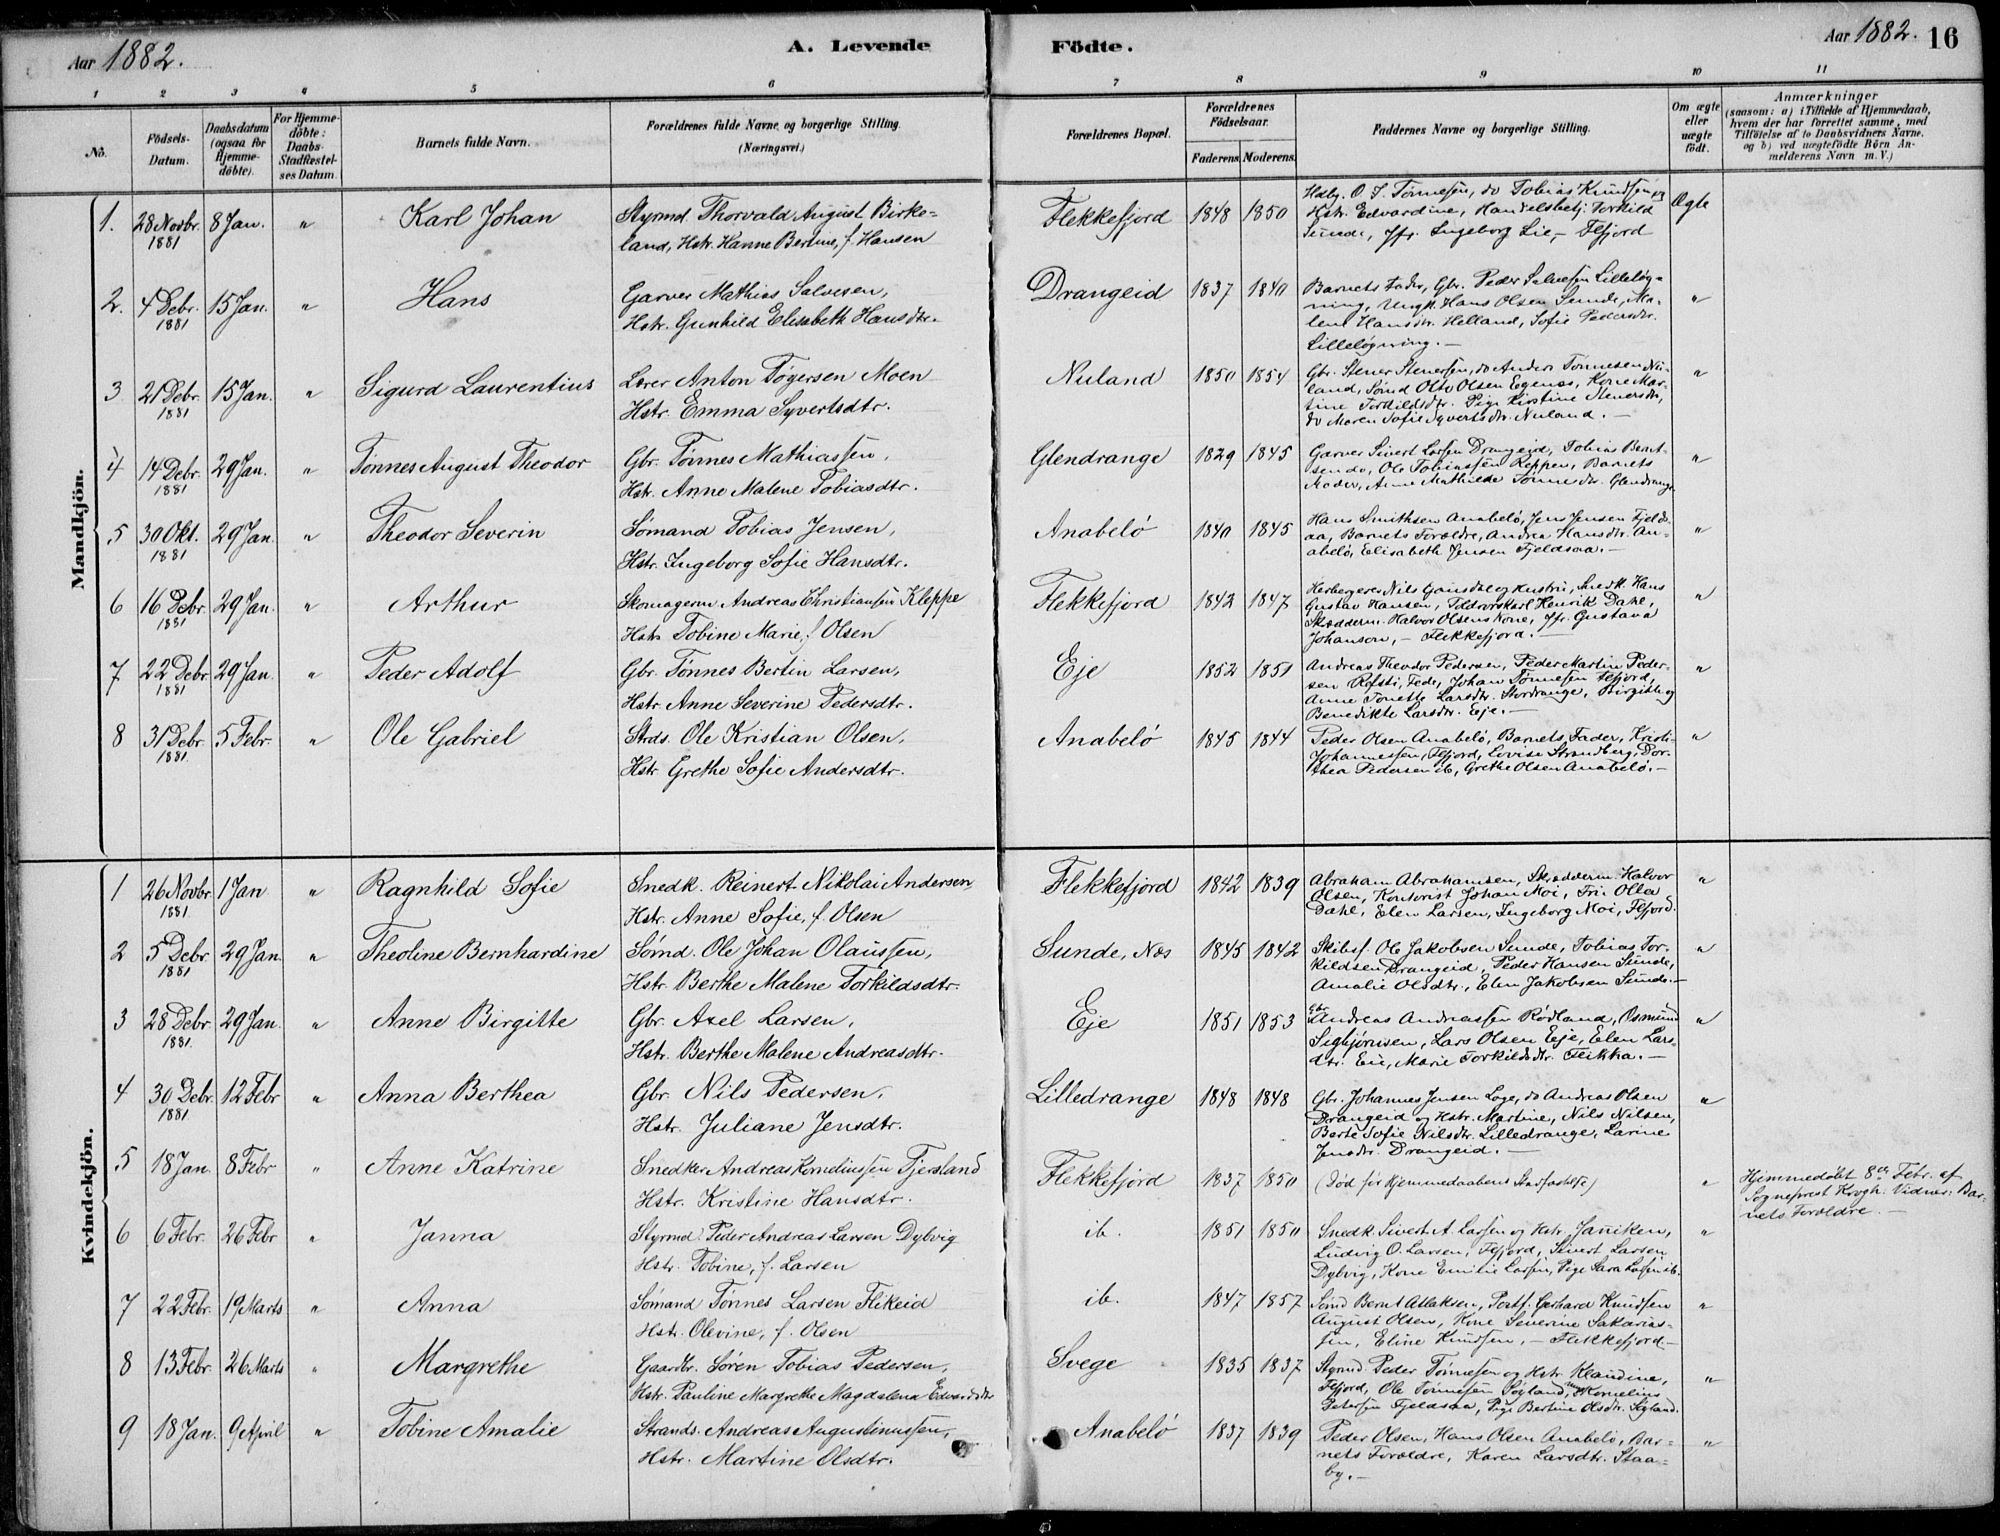 Aar 1882.
A. Levende
Födte.
Aar 1882.
16
1 2 3 4 5 6 7 8 9 10 11
No.
Födsels-
Datum.
Daabsdatum
(ogsaa for
Hjemme-
döbte).
For Hjemme-
döbte:
Daabs-
Stadfæstel-
ses Datum.
Barnets fulde Navn.
Forældrenes fulde Navne og borgerlige Stilling.
(Næringsvei.)
Forældrenes Bopæl.
Forældrenes
Födselsaar.
Faderens. Moderens.
Faddernes Navne og borgerlige Stilling.
Om ægte
eller
uægte
födt.
Anmærkninger
(saasom: a) i Tilfælde af Hjemmedaab,
hvem der har forrettet samme, med
Tilföielse af to Daabsvidners Navne.
og b) ved uægtefödte Börn An-
melderens Navn m. V.)
Mandkjön.
1. 28 Novbr. 1881 8 Jan. " Karl Johan
Styrmd Thorvald August Birke-
land, Hstr. Hanne Bertine, f. Hansen
Flekkefjord 1848 1850
O. T. Tønnesen, do Tobias Knudsen og
Hstr. Edvardine, Handelsbetj. Torkild
Sunde, Jfr. Ingeborg Lie, – Ffjord
Ægte
2. 4 Debr. 1881 15 Jan. " Hans
Garver Mathias Salvesen,
Hstr. Gunhild Elisabeth Hansdtr.
Drangeid 1837 1840
Barnets Fader, Gbr. Peder Salvesen Lilleløg-
ning, Ungk. Hans Olsen Sunde, Ma-
lene Hansdtr. Helland, Sofie Pedersdtr.
Lilleløgning. –
"
3 21 Debr. 1881 15 Jan. " Sigurd Laurentius
Lærer Anton Tøgersen Moen
Hstr. Emma Syvertsdtr.
Nuland 1850 1854
Gbr. Stener Stenersen, do Anders Tønnesen Nu-
land, Sømd Olsen Egenes, Kone Mar-
tine Torkildsdtr. Pige Kirstine Stenersdtr,
do Maren Sofie Syvertsdtr. Nuland. –
"
4 14 Debr. 1881 29 Jan. " Tønnes August Theodor
Gbr. Tønnes Mathiassen,
Hstr. Anne Malene Tobiasdtr.
Glendrange 1829 1845
Garver Sivert Larsen Drangeid, Tobias Bernt-
sen do, Ole Tobiassen Barnets
Moder, Anne Mathilde Tønnesdtr. Glendrange
"
5 30 Okt. 1881 29 Jan. " Theodor Severin
Sømand Tobias Jensen,
Hstr. Ingeborg Sofie Hansdtr.
Anabelø 1840 1845
Hans Smithsen Anabelø, Jens Jensen Fjelds-
aa, Barnets Forældre, Andrea Hansdtr. An-
abelø, Elisabeth Jensen Fjeldsaa. –
"
6 16 Debr. 1881 29 Jan. " Arthur
Skomagerm Andreas Christiansen Kleppe
Hstr. Tobine Marie, f. Olsen
Flekkefjord 1842 1847
Herbergerer Nils og Hustru, Snedk. Hans
Gustav Hansen, Henrik Dahl,
Skrædderm. Halvor Olsens Kone, Jfr. Gustava
Johanson, – Flekkefjord. –
"
7 22 Debr. 1881 29 Jan " Peder Adolf
Gbr. Tønnes Bertin Larsen,
Hstr. Anne Severine Pedersdtr.
Eje 1852 1851
Andreas Theodor Pedersen, Peder Martin Peder-
sen Fede, Johan Tønnesen Ffjord,
Anne Tonette Larsdtr. Stordrange, Birgitte og
Benedikte Larsdtr. Eje. –
"
8 31 Debr. 1881 5 Febr. " Ole Gabriel
Strds. Ole Kristian Olsen,
Hstr. Grethe Sofie Andersdtr.
Anabelø 1845 1844
Peder Olsen Anabelø, Barnets Fader, Kristi-
Johannessen, Ffjord, Lovise Strandberg, Dor-
thea Pedersen ib, Grethe Olsen Anabelø. –
"
Kvindekjön.
1 26 Novbr. 1881 1 Jan " Ragnhild Sofie
Snedk. Reinert Nikolai Andersen
Hstr. Anne Sofie, f. Olsen
Flekkefjord 1842 1839
Abraham Abrahamsen, Skrædderm. Halvor
Olsen, Kontorist Johan Moi, Fru Olea
Dahl, Elen Larsen, Ingeborg Moi, Ffjord.
"
2 5 Debr. 1881 29 Jan. " Theoline Bernhardine
Sømd. Ole Johan Olaussen,
Hstr. Berthe Malene Torkildsdtr.
Sunde, Nes 1845 1842
Skibsf. Ole Jakobsen Sunde, Tobias Tor-
kildsen Drangeid, Peder Hansen Sunde,
Amalie Olsdtr., Elen Jakobsen Sunde. –
"
3 28 Debr. 1881. 29 Jan. " Anne Birgitte
Gbr. Axel Larsen,
Hstr. Berthe Malene Andreasdtr.
Eje 1851 1853
Gbr. Andreas Andreassen Rødland, Osmund
Sigbjørnsen, Lars Olsen Eje, Elen Lars-
dtr. Eie, Marie Torkildsdtr. Flikka. –
"
4 30 Debr. 1881 12 Febr " Anna Berthea
Gbr. Nils Pedersen,
Hstr. Juliane Jensdtr.
Lilledrange 1848 1848
Gbr. Johannes Jensen Loge, do Andreas Olsen
Drangeid og Hstr. Martine, Nils Nilsen,
Berte Sofie Nilsdtr. Lilledrange, Larine
Jensdtr. Drangeid. –
"
5 18 Jan. 8 Febr " Anne Katrine
Snedker Andreas Korneliussen Tjersland
Hstr. Kristine Hansdtr.
Flekkefjord 1837 1850
(Død før Hjemmedaabens Stadfæstelse)
"
Hjemmedøbt 8de Febr. af
Sogneprest Krogh. Vidner: Bar-
nets Forældre. –
6 6 Febr. 26 Febr " Janna
Styrmd. Peder Andreas Larsen Dybvig
Hstr. Tobine, f. Larsen
ib. 1851 1850
Snedk. Sivert A. Larsen og Hstr. Janniken,
Ludvig O. Larsen, Ffjord, Sivert Larsen
Dybvig, Kone Emilie Larsen, Pige Sara Larsen ib.
"
7 22 Febr. 19 Marts " Anna
Sømand Tønnes Larsen Flikeid
Hstr. Olevine, f. Olsen
ib. 1847 1857
Sømd Bernt Atlaksen, Gerhard Knudsen
August Olsen, Kone Severine Sakarias-
sen, Eline Knudsen, – Flekkefjord –
"
8 13 Febr. 26 Marts " Margrethe
Gaardbr. Søren Tobias Pedersen,
Hstr. Pauline Margrethe Magdalena Edvardsdtr
Svege 1835 1837
Styrmd. Peder Tønnesen og Hstr. Klandine,
Ffjord, Ole Tønnesen Søyland, Kornelius
Petersen Fjeldsaa, Pige Bertine Olsdtr.
"
9 18 Jan. 9 April " Tobine Amalie
Strands. Andreas Augustinussen,
Hstr. Martine Olsdtr.
Anabelø 1837 1839
Peder Olsen, Hans Olsen Anabelø, Bar-
nets Forældre, Karen Larsdtr. Staa-
by. –
"